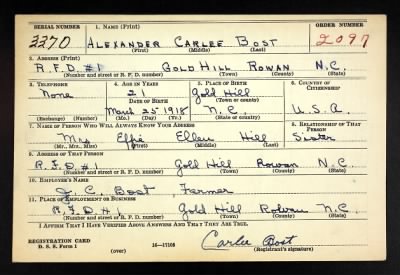 SERIAL NUMBER 1. NAME (Print) ORDER NUMBER
3370 ALEXANDER CARLEE BOST 2097
(First) (Middle) (Last)
2. ADDRESS (Print)
R.F.D. #1 GOLD HILL ROWAN N.C.
(Number and street or R. F. D. number) (Town) (County) (State)
3. TELEPHONE 4. AGE IN YEARS 5. PLACE OF BIRTH 6. COUNTRY OF CITIZENSHIP
None 21 Gold Hill
DATE OF BIRTH (Town or county)
March 25 1918 N.C. U.S.A.
(Exchange) (Number) (Mo.) (Day) (Yr.) (State or country)
7. NAME OF PERSON WHO WILL ALWAYS KNOW YOUR ADDRESS 8. RELATIONSHIP OF THAT PERSON
Mrs Effie Ellen Hill Sister
(Mr., Mrs., Miss) (First) (Middle) (Last)
9. ADDRESS OF THAT PERSON
R.F.D. #1 Gold Hill Rowan N.C.
(Number and street or R. F. D. number) (Town) (County) (State)
10. EMPLOYER'S NAME
J. C. Bost, Farmer
11. PLACE OF EMPLOYMENT OR BUSINESS
R.F.D. #1 Gold Hill Rowan N.C.
(Number and street or R. F. D. number) (Town) (County) (State)
I AFFIRM THAT I HAVE VERIFIED ABOVE ANSWERS AND THAT THEY ARE TRUE.
REGISTRATION CARD Carlee Bost
D. S. S. Form 1 (over) 16—17105 (Registrant's signature)